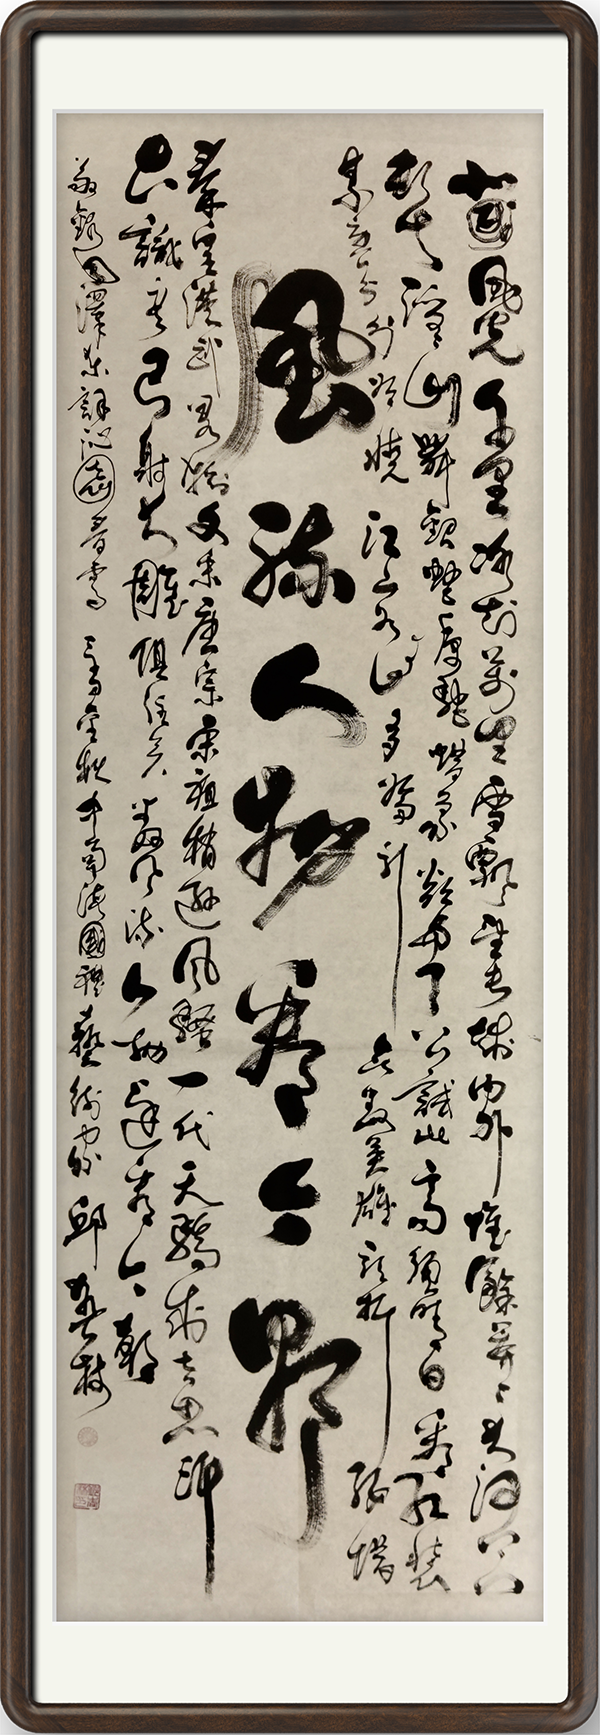 北國風光千里冰封萬里雪飄望長城內外惟餘莽々大河上下
頓失滔々山舞銀蛇原馳蠟象欲與天公試比高須晴日看紅裝
素裹分外妖嬈江山如此多嬌引無數英雄競折腰惜
風流人物看今朝
秦皇漢武略輸文采唐宗宋祖稍遜風騷一代天驕成吉思汗
只識彎弓射大雕俱往矣數風流人物還看今朝
敬錄毛澤東詞沁園春雪中南海國禮藝術家邱